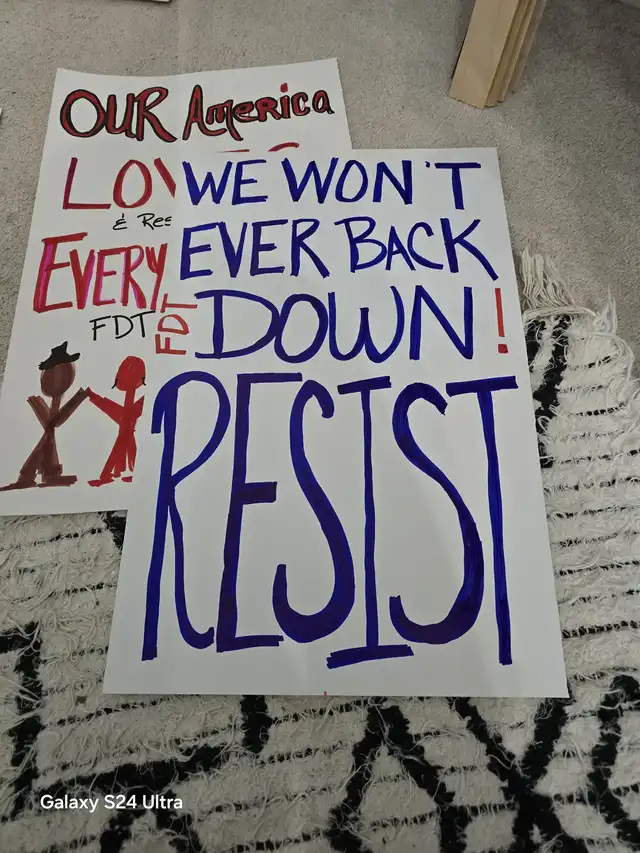 OUR America
EVERY
FDT
WE WON'T
EVER BACK
DOWN!
FDT
RESIST
Galaxy S24 Ultra